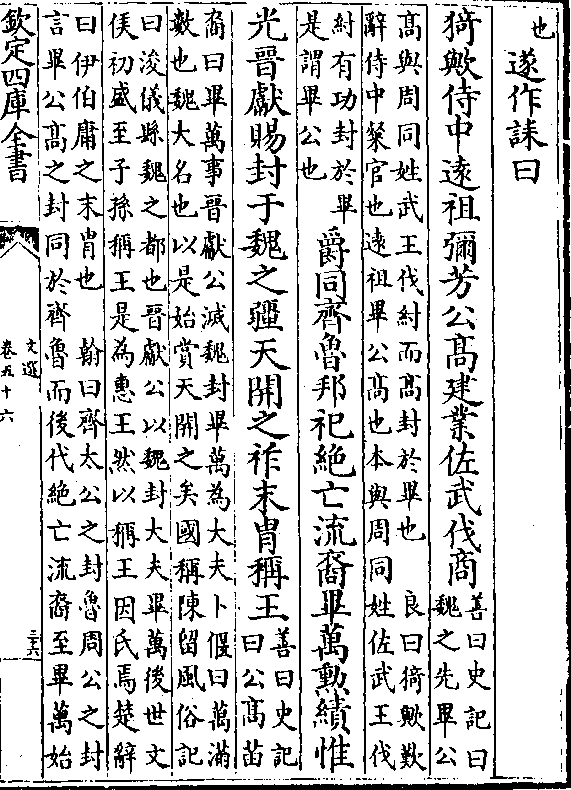 也
遂作誄曰
猗歟侍中遠祖彌芳公高建業佐武伐商
善曰史記曰
魏之先畢公
高與周同姓武王伐紂而高封於畢也 良曰猗歟歎
辭侍中粲官也遠祖畢公高也本與周同姓佐武王伐
紂有功封於畢
是謂畢公也
爵同齊魯邦祀絕亡流裔畢萬勳績惟
光晉獻賜封于魏之疆天開之祚末胄稱王
善曰史記
曰公高苗
裔曰畢萬事晉獻公滅魏封畢萬為大夫卜偃曰萬滿
數也魏大名也以是始賞天開之矣國稱陳留風俗記
曰浚儀縣魏之都也晉獻公以魏封大夫畢萬後世文
侯初盛至子孫稱王是為惠王然以稱王因氏焉楚辭
曰伊伯庸之末胄也 翰曰齊太公之封魯周公之封
言畢公高之封同於齊魯而後代絕亡流裔至畢萬始
欽定四庫全書
文選
卷五十六